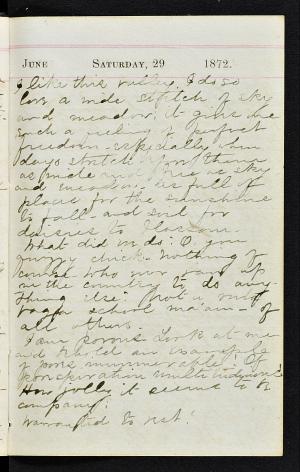 June Saturday, 29 1872.
I like this valley. I do so
love a wide stretch of sky
and meadow; it gives me
such a feeling of perfect
freedom - especially when
days stretch before them
as wide and free as sky
and meadow - as full of
place for the sunshine
to fall - and soil for
daisies to blossom.
What did we do? O, you
chick - nothing of
course who ever ran up
in the country to do any-
thing else? Not a
school ma'am - of
all others.
I am porous. Look at me
and
of pores innumerable! Of
perspiration
How jolly it seems to be
company!
Warranted to rest!